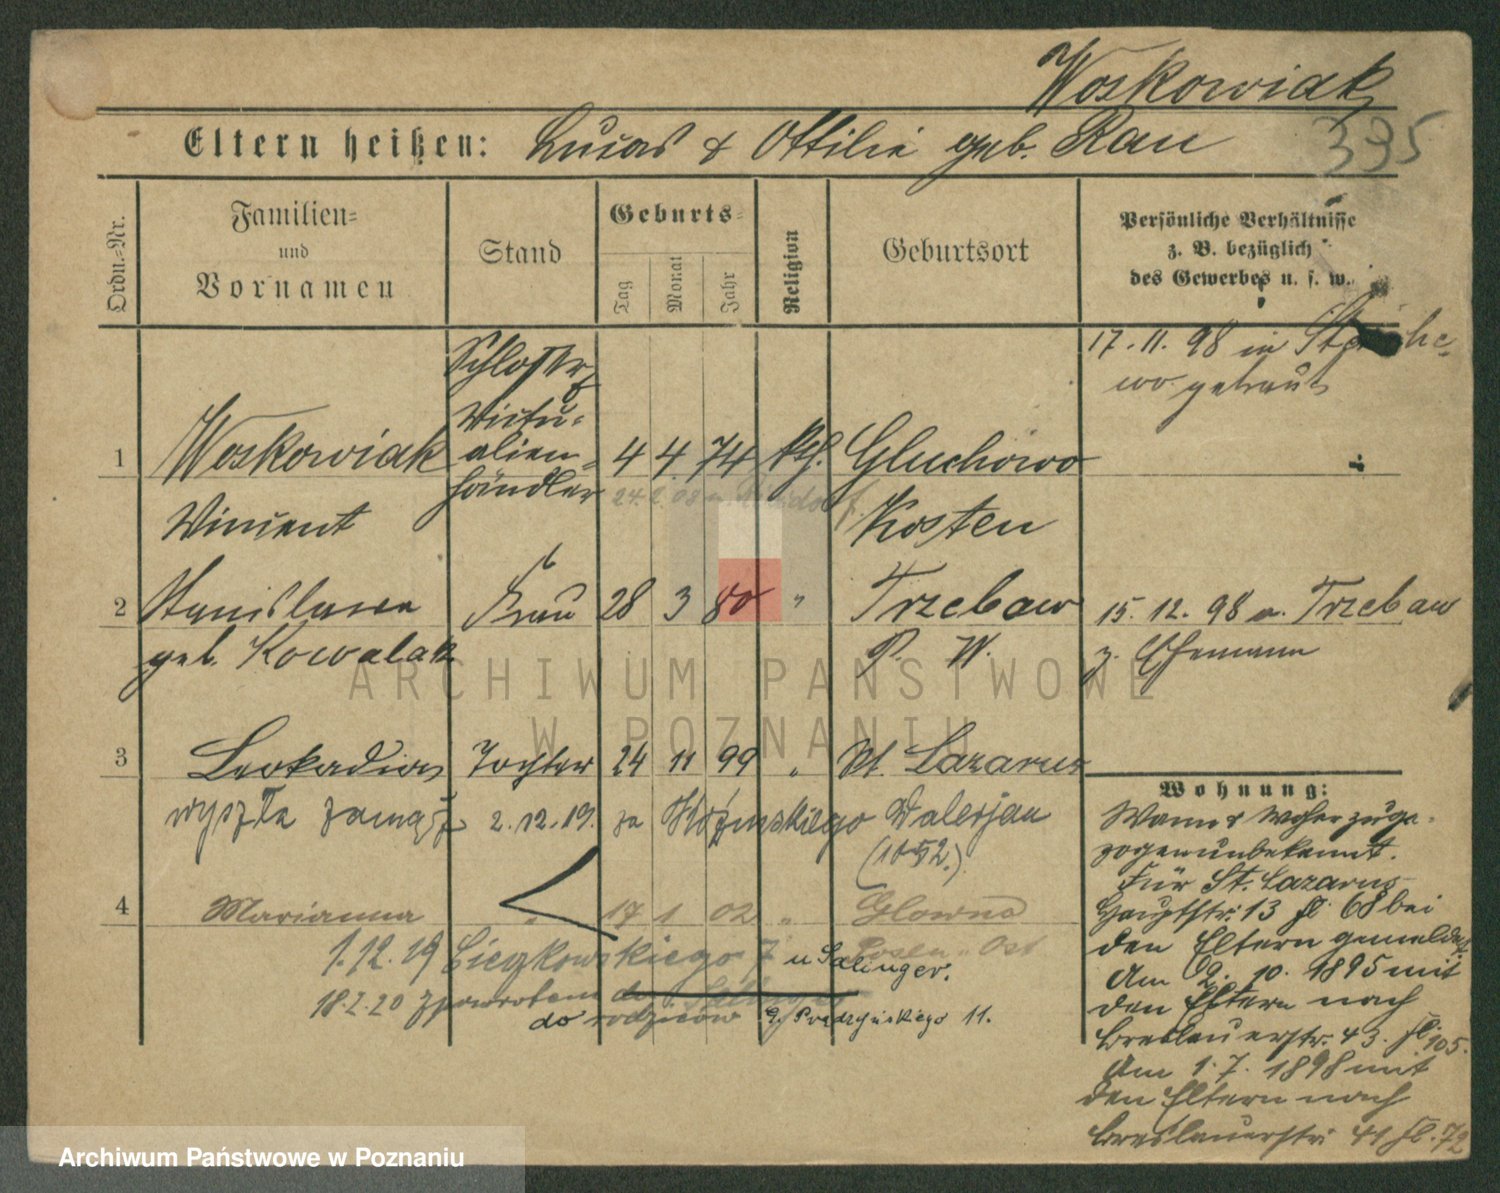 Woskowiak
Eltern heißen: Lucas & Ottilie geb. Rau
395
Ordn.-Nr.
Familien-
und
Vornamen
Stand
Geburts-
Tag
Monat
Jahr
Religion
Geburtsort
Persönliche Verhältnisse
z. B. bezüglich
des Gewerbes u. s. w.
17. 11. 98 in
wo getraut
1 Woskowiak Schlosser, Victu-alien-händler 4 4 74 kth. Gluchowo
24. 2. 08
Vincent Kosten
2 Stanislawa Frau 28 3 80 " Trzebaw 15. 12. 98 a. Trzebaw
geb. Kowalak P. W. z. Ehemann
3 Leokadia Tochter 24 11 99 " St. Lazarus
wyszła zamąż 2.12.19. za Walerjan
(1052.)
4 Marianna " 17 1 02 " Glowno
Posen-Ost
1.12.19 7 u Salinger.
18.2.20 zpowrotem
do rodziców G. Prądzyńskiego 11.
Wohnung:
Wann & woher zuge-
zogen unbekannt.
Für St. Lazarus
Hauptstr. 13 fl 68 bei
den Eltern gemeldet.
Am 2. 10. 1895 mit
den Eltern nach
Breslauerstr. 43. fl. 105.
Am 1. 7. 1898 mit
den Eltern nach
Breslauerstr. 41 fl. 72
ARCHIWUM PAŃSTWOWE
W POZNANIU
Archiwum Państwowe w Poznaniu